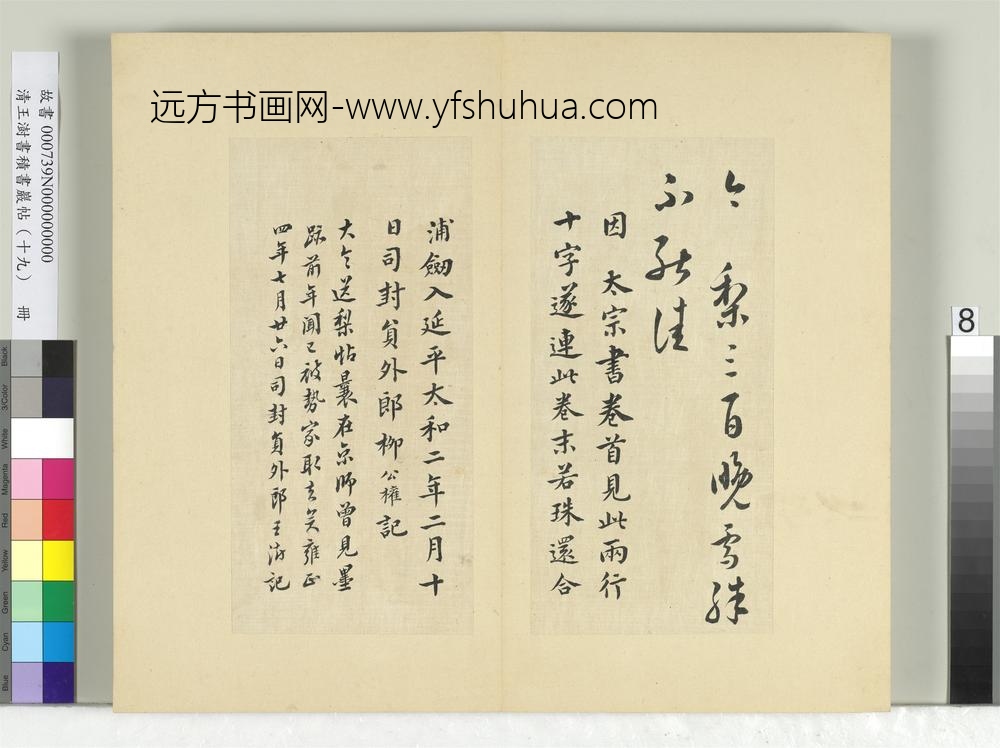 远方书画网-www.yfshuhua.com
故書 000739N000000000
清王澍書積書巖帖（十九） 冊
今 梨三百晚雪殊
不能佳
因 太宗書卷首見此兩行
十字遂連此卷末若珠還合
浦劔入延平太和二年二月十
日司封員外郎柳公權記
大令送梨帖曩在京師曾見墨
跡前年聞已被勢家取去矣雍正
四年七月廿六日司封員外郎王澍記
8
Black
3/Color
White
Magenta
Red
Yellow
Green
Cyan
Blue